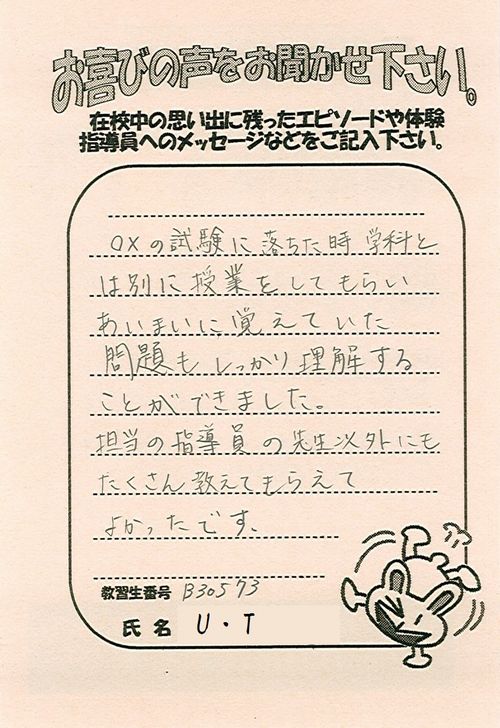 お喜びの声をお聞かせ下さい。
在校中の思い出に残ったエピソードや体験
指導員へのメッセージなどをご記入下さい。
OXの試験に落ちた時学科と
は別に授業をしてもらい
あいまいに覚えていた
問題もしっかり理解する
ことができました。
担当の指導員の先生以外にも
たくさん教えてもらえて
よかったです。
教習生番号 B30573
氏名 U・T